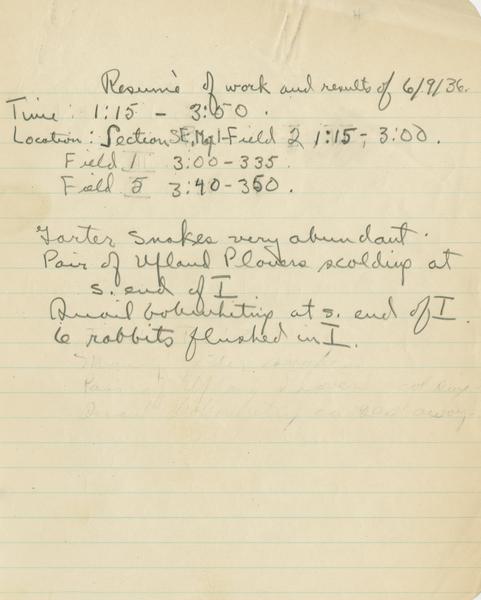 Resumé of work and results of 6/9/36.
Time: 1:15 - 3:50.
Location: Section SE, Mql-Field 2 1:15-, 3:00.
Field 1 3:00-335.
Field 5 3:40-350.
Garter snakes very abundant.
Pair of Upland Plovers scolding at
s. end of I
Quail bobwhiting at s. end of I.
6 rabbits flushed in I.